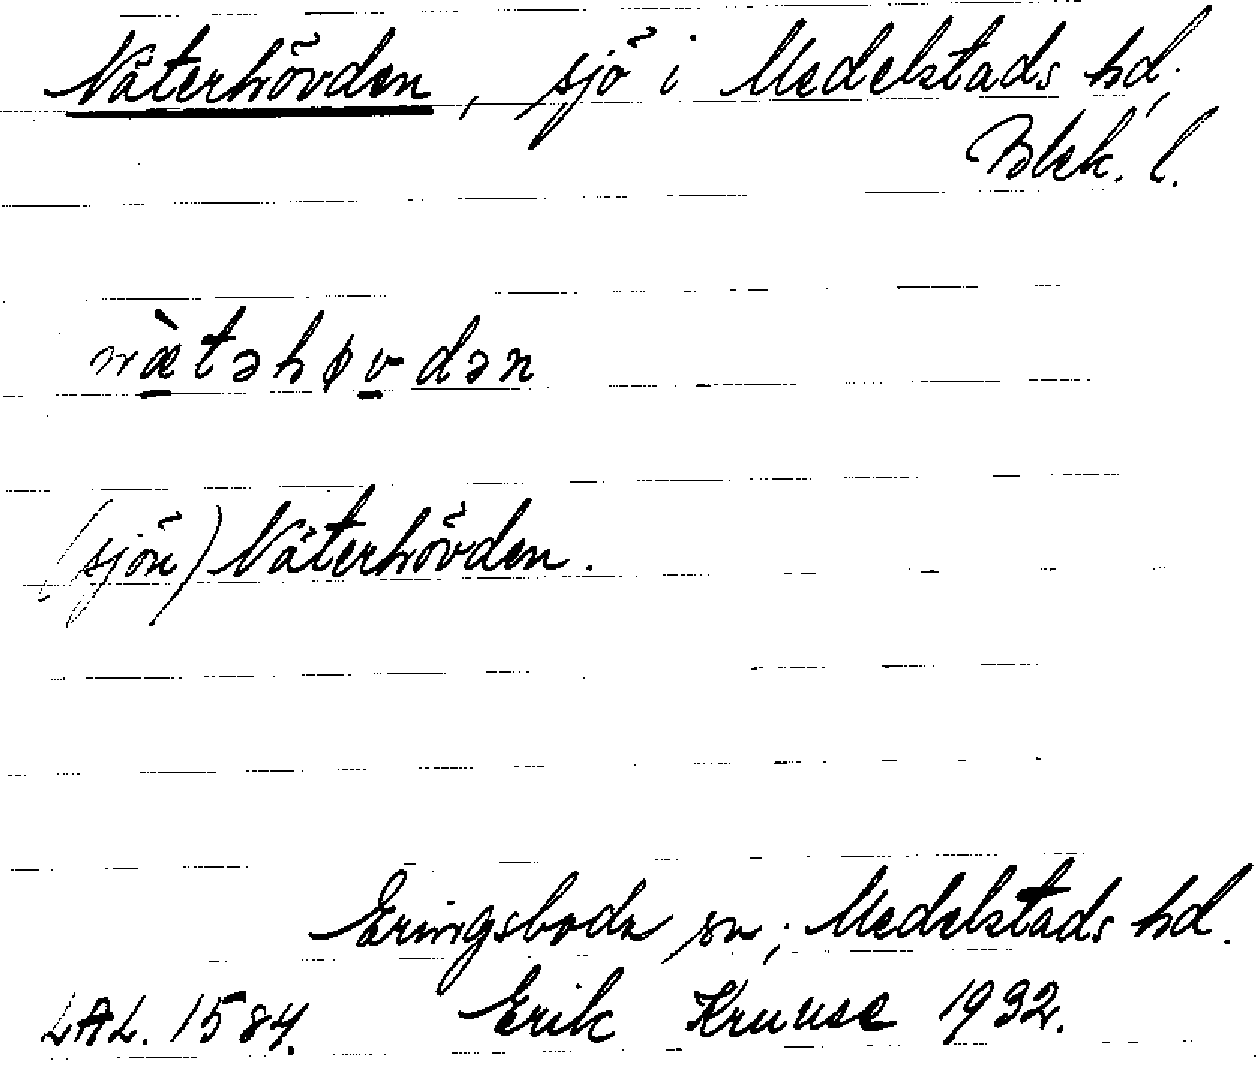 Näterhövden, sjö i Medelstads hd,
Blek. l.
næ̀təhøvdən
(sjön) Näterhövden.
Eringsboda sn, Medelstads hd.
LAL. 1584. Erik Kruuse 1932.